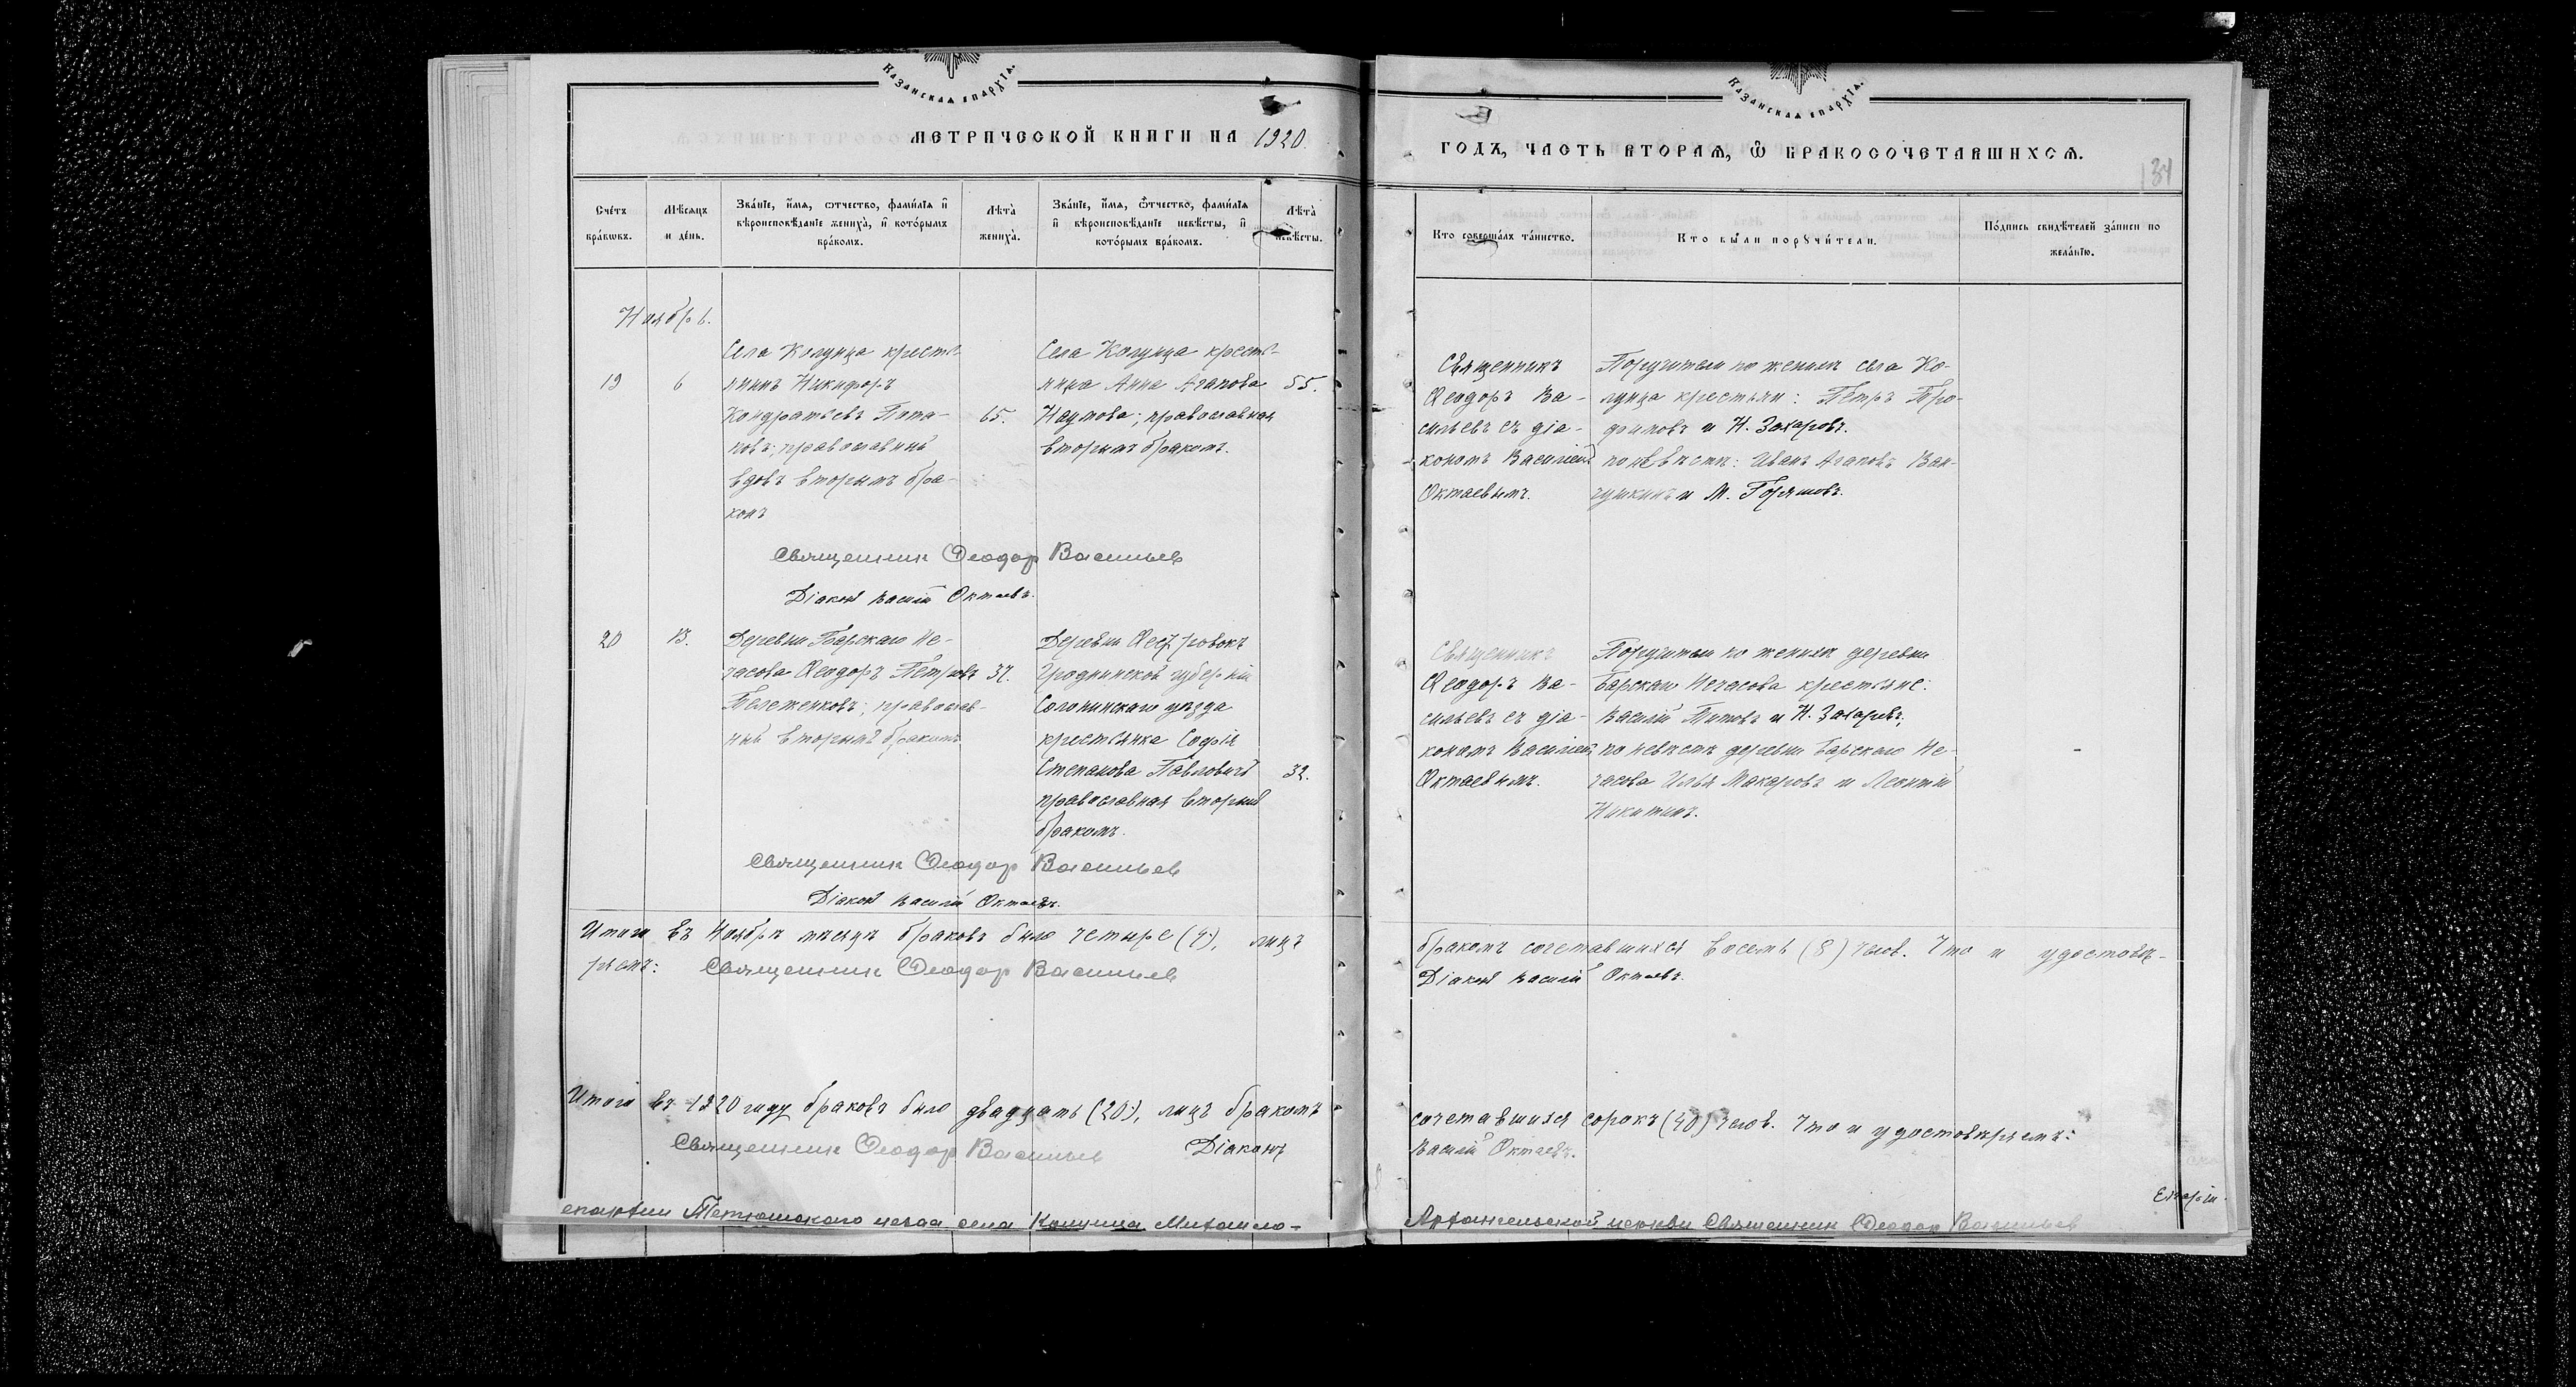 Казанская епархїа.
Казанская епархїа.
МЕТРИЧЕСКОЙ КНИГИ НА 1920
ГОДЪ, ЧАСТЬ ВТОРАЯ, Ѿ БРАКОСОЧЕТАВШИХСЯ.
134
Счетъ браковъ.
Мѣсяцъ и день.
Званіе, имя, отчество, фамилія и вѣроисповѣданіе жениха, и которымъ бракомъ.
Лѣта жениха.
Званіе, имя, отчество, фамилія и вѣроисповѣданіе невѣсты, и которымъ бракомъ.
Лѣта невѣсты.
Кто совершалъ таинство.
Кто были поручители.
Подпись свидѣтелей записи по желанію.
Ноябрь.
19
6
Села Колунца кресть-
янинъ Никифоръ
Кондратьевъ Пота-
повъ; православный
вдовъ вторымъ бра-
комъ
65.
Села Колунца кресть-
янка Анна Агапова
Наумова; православная
вторымъ бракомъ.
55.
Священникъ
Ѳеодоръ Ва-
сильевъ съ діа-
кономъ Василіемъ
Октаевымъ.
Поручители по женихѣ села Ко-
лунца крестьян: Петръ
и Н. Захаровъ.
по невѣстѣ: Иванъ Агаповъ
и М. Горшковъ.
Священник Феодор Васильев
Діаконъ Василій Октаевъ.
20
13.
Деревни Барскаго Не-
часова Ѳеодоръ Петровъ
православ-
ный вторымъ бракомъ
37.
Деревни
Гродненской губерніи
Слонимскаго уѣзда
крестьянка Софія
Степанова Павловичъ
православная вторымъ
бракомъ.
32.
Священникъ
Ѳеодоръ Ва-
сильевъ съ діа-
кономъ Василіемъ
Октаевымъ.
Поручители по женихѣ деревни
Барскаго Нечасова крестьяне:
Василій Титовъ и Н. Захаровъ,
по невѣстѣ деревни Барскаго Не-
часова Илья Макаровъ и Леонтій
Никитинъ.
Священник Феодор Васильев
Діаконъ Василій Октаевъ.
Итого въ Ноябрѣ мѣсяцѣ браковъ было четыре (4), лицъ
бракомъ сочетавшихся восемь (8) челов. Что и удостовѣ-
ряемъ: Священник Феодор Васильев
Діаконъ Василій Октаевъ.
Итого въ 1920 году браковъ было двадцать (20), лицъ бракомъ
сочетавшихся сорокъ (40) челов. Что и удостовѣряемъ:
Священник Феодор Васильев Діаконъ
Василій Октаевъ.
епархии Тетюшскаго уезда села Колунца Михаило-
Архангельской церкви Священник Феодор Васильев